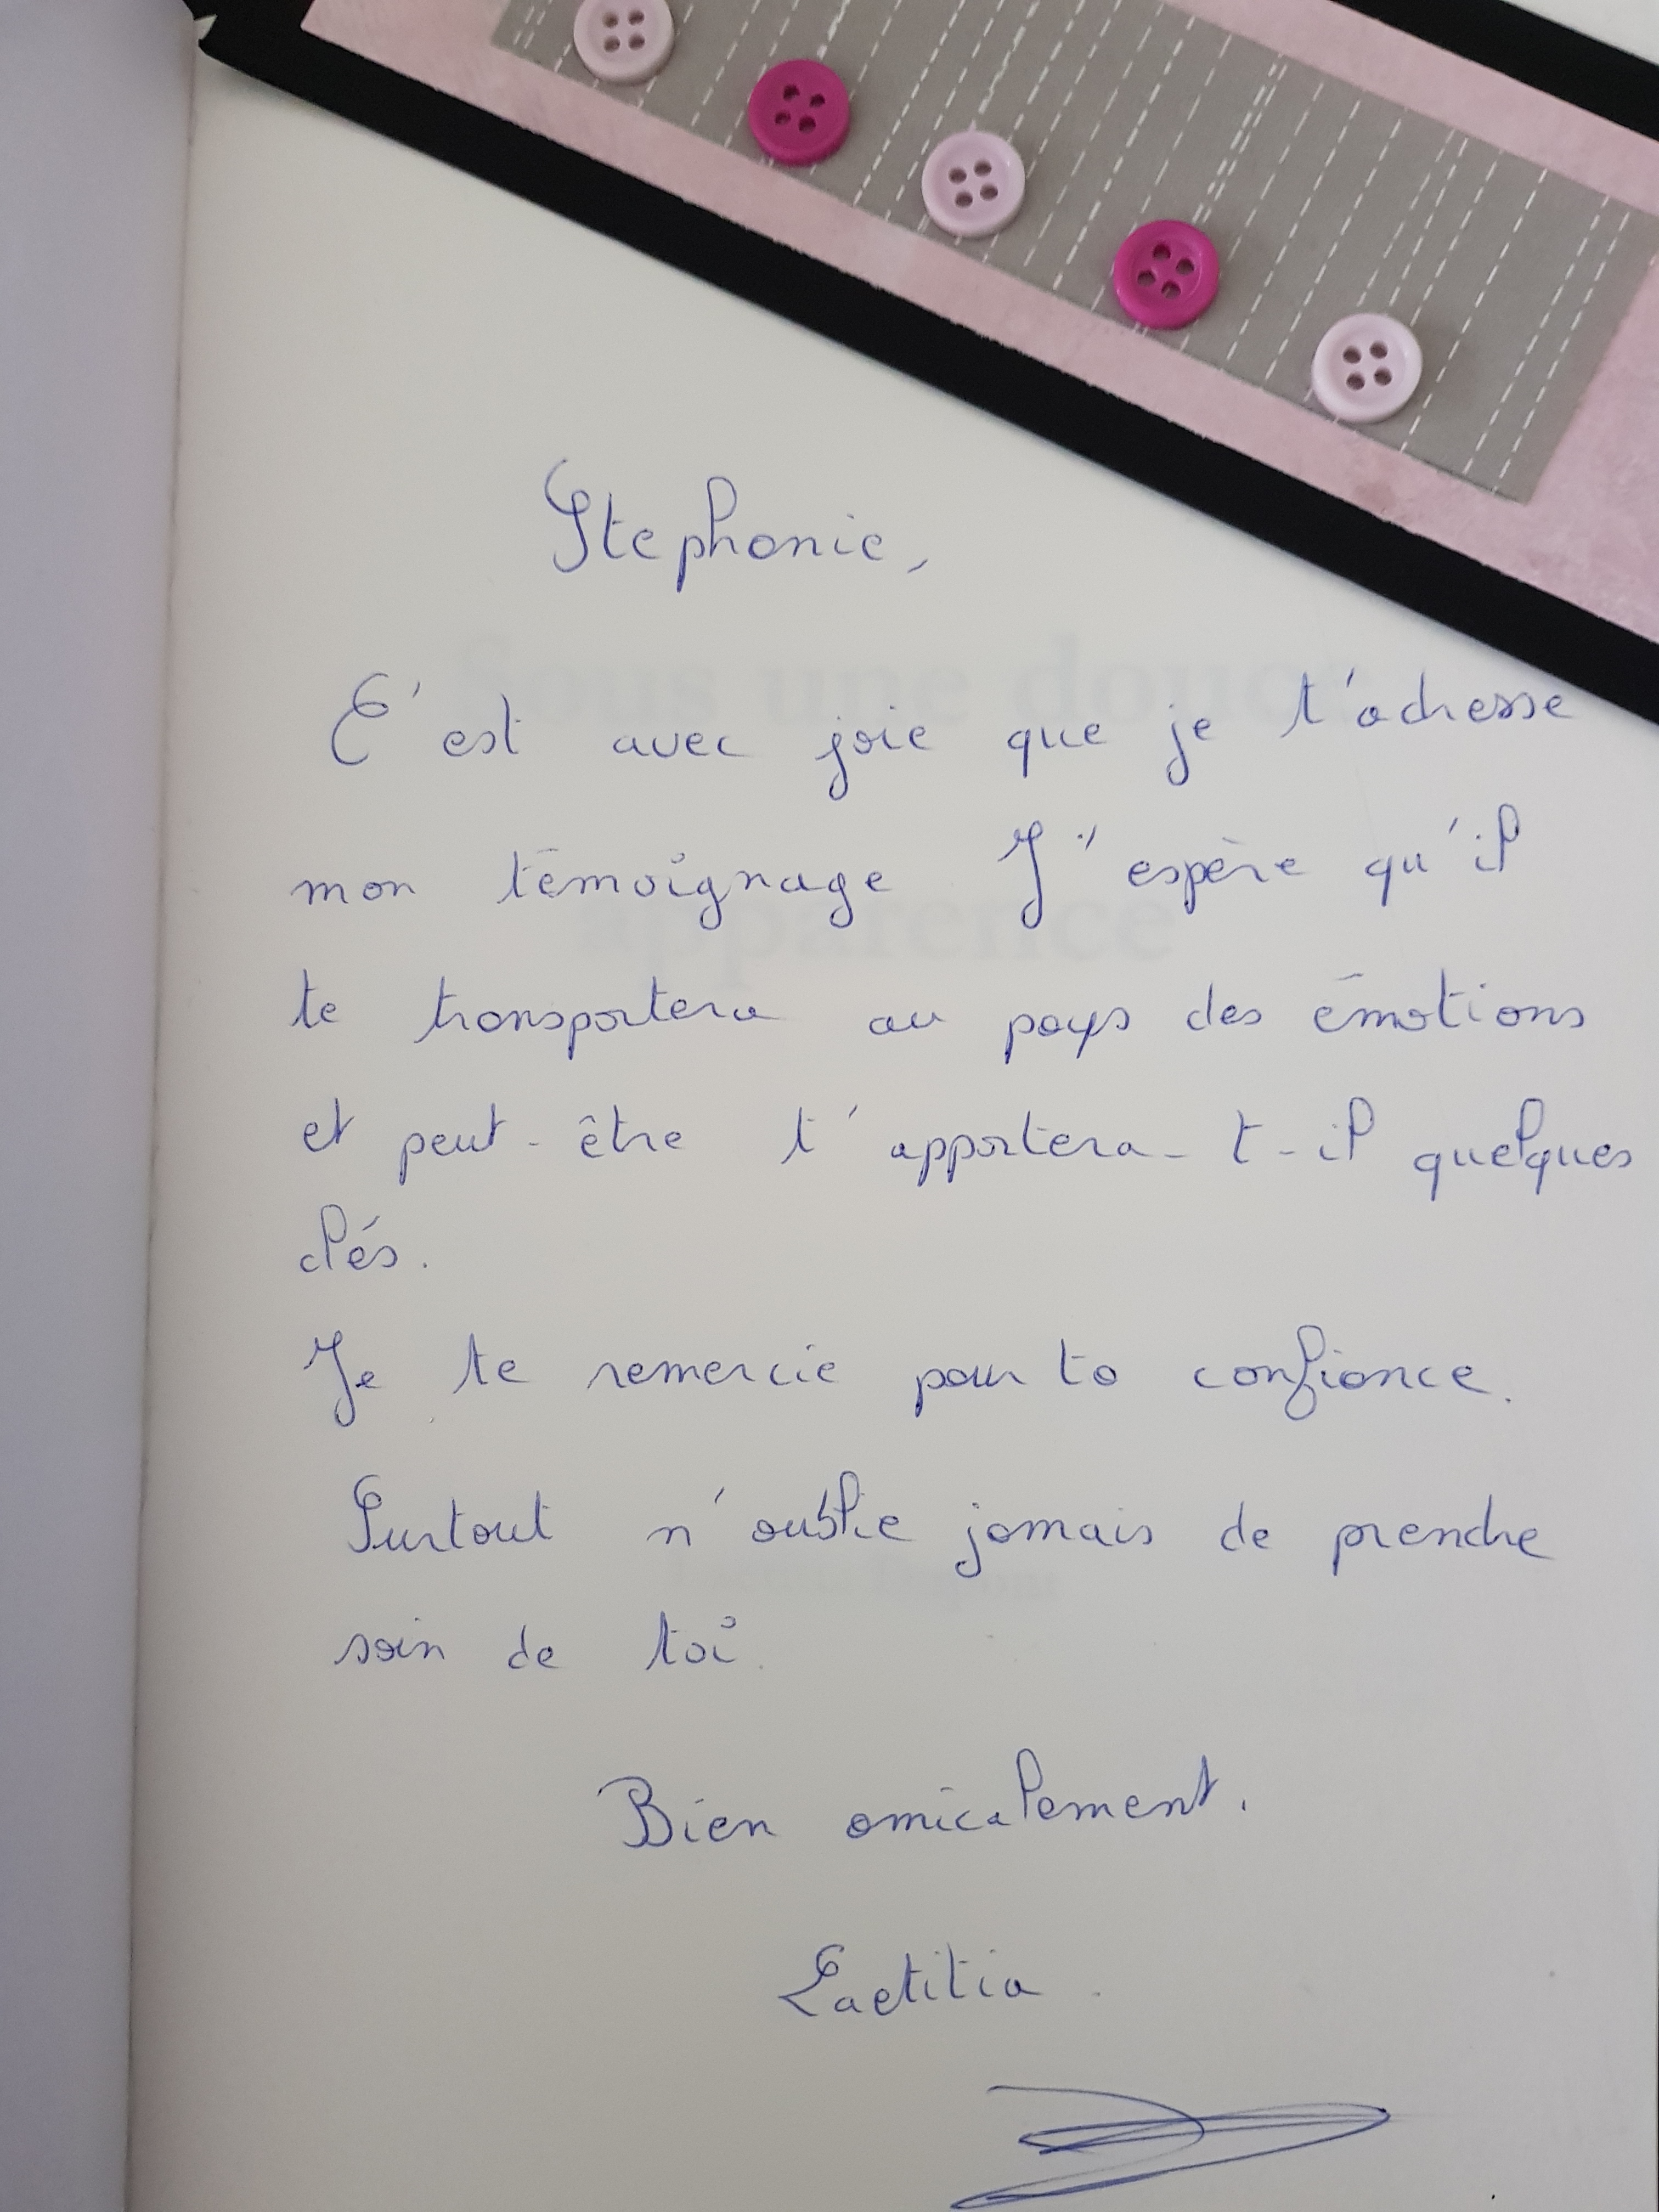 Stephanie,
C'est avec joie que je t'adresse
mon témoignage. J'espère qu'il
te transportera au pays des émotions
et peut-être t'apportera-t-il quelques
clés.
Je te remercie pour ta confiance.
Surtout n'oublie jamais de prendre
soin de toi.
Bien amicalement.
Laetitia.
Sous une douce
apparence